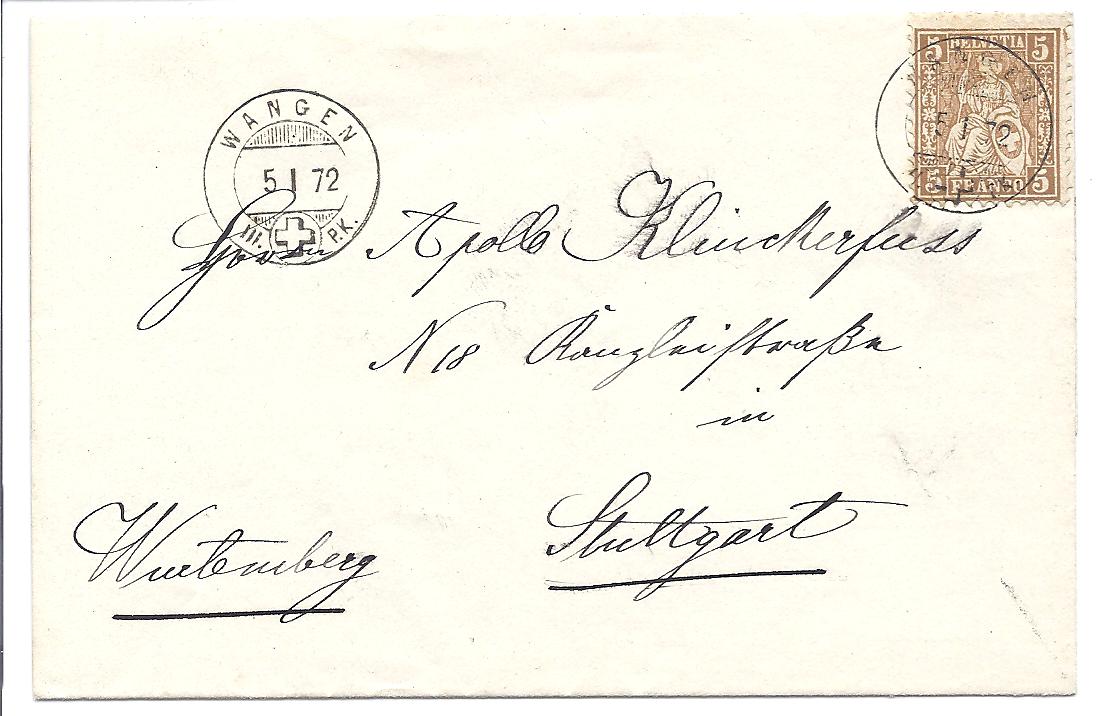 WANGEN
5 I 72
III. P.K.
5 HELVETIA 5
5 I 72
5 FRANCO 5
Herrn Apollo Klinckerfuss
N 18 Kanzleistraße
in
Stuttgart
Wurtemberg